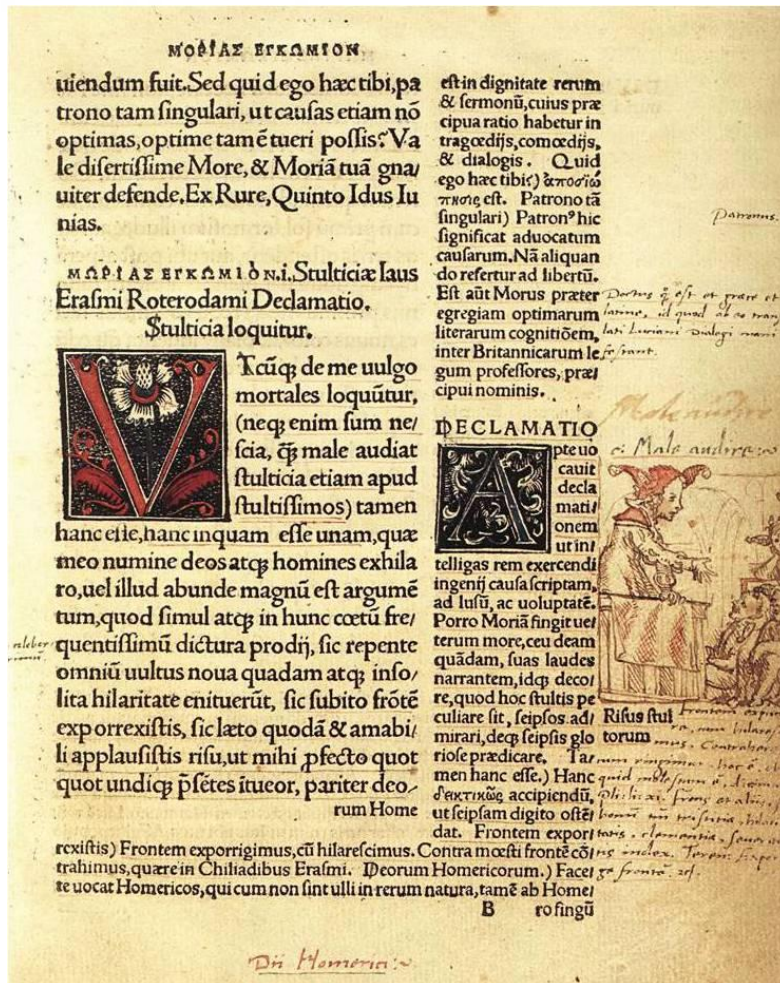 ΜΟΡΙΑΣ ΕΓΚΩΜΙΟΝ
uiendum fuit. Sed quid ego hæc tibi, pa
trono tam ſingulari, ut cauſas etiam nō
optimas, optime tamē tueri poſſis? Va
le diſertiſſime More, & Moriā tuā gna/
uiter defende. Ex Rure, Quinto Idus Iu
nias.
ΜΩΡΙΑΣ ΕΓΚΩΜΙΟΝ.i. Stulticiæ laus
Eraſmi Roterodami Declamatio.
Stulticia loquitur.
VTcūq; de me uulgo
mortales loquūtur,
(neq; enim ſum ne/
ſcia, q̄; male audiat
ſtulticia etiam apud
ſtultiſſimos) tamen
hanc eſſe, hanc inquam eſſe unam, quæ
meo numine deos atq; homines exhila
ro, uel illud abunde magnū eſt argumē
tum, quod ſimul atq; in hunc cœtū fre/
quentiſſimū dictura prodij, ſic repente
omniū uultus noua quadam atq; inſo/
lita hilaritate enituerūt, ſic ſubito frōtē
exporrexiſtis, ſic læto quodā & amabi/
li applauſiſtis riſu, ut mihi ꝓfecto quot
quot undiq; p̄ſētes ītueor, pariter deo/
rum Home
eſt in dignitate rerum
& ſermonū, cuius præ
cipua ratio habetur in
tragœdijs, comœdijs,
& dialogis. Quid
ego hæc tibi?) ἀποσιώ
πησις eſt. Patrono tā
ſingulari) Patronꝰ hic
ſignificat aduocatum
cauſarum. Nā aliquan
do refertur ad libertū.
Eſt aūt Morus præter
egregiam optimarum
literarum cognitiōem,
inter Britannicarum le
gum profeſſores, præ/
cipui nominis.
DECLAMATIO
Apte uo
cauit
decla
mati/
onem
ut in/
telligas rem exercendi
ingenij cauſa ſcriptam,
ad luſū, ac uoluptatē.
Porro Moriā fingit ue/
terum more, ceu deam
quādam, ſuas laudes
narrantem, idq; deco/
re, quod hoc ſtultis pe
culiare ſit, ſeipſos ad/
mirari, deq; ſeipſis glo
rioſe prædicare. Ta/
men hanc eſſe.) Hanc
δεικτικῶς accipiendū,
ut ſeipſam digito oſtē/
dat. Frontem expor/
rexiſtis) Frontem exporrigimus, cū hilareſcimus. Contra mœſti frontē cō/
trahimus, quære in Chiliadibus Eraſmi. Deorum Homericorum.) Face/
te uocat Homericos, qui cum non ſint ulli in rerum natura, tamē ab Home/
B ro fingū
Patronus.
Male audire
Riſus ſtul
torum
Dii Homerici